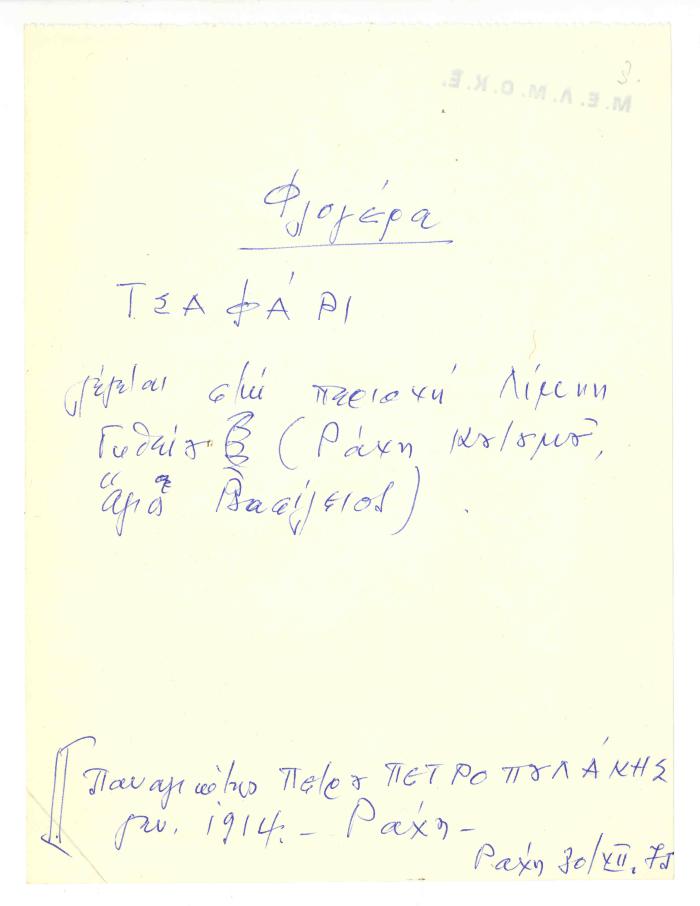 3.
Μ.Ε.Λ.Μ.Ο.Κ.Ε.
Φλογέρα
ΤΣΑΦΆΡΙ
λέγεται στὴ περιοχὴ Λίμνη
Γυθείου (Ράχη
Ἅγιος Βασίλειος).
Παναγιώτης Πέτρου ΠΕΤΡΟΠΟΥΛΆΚΗΣ
γεν. 1914. – Ράχη –
Ράχη 30/XII.75